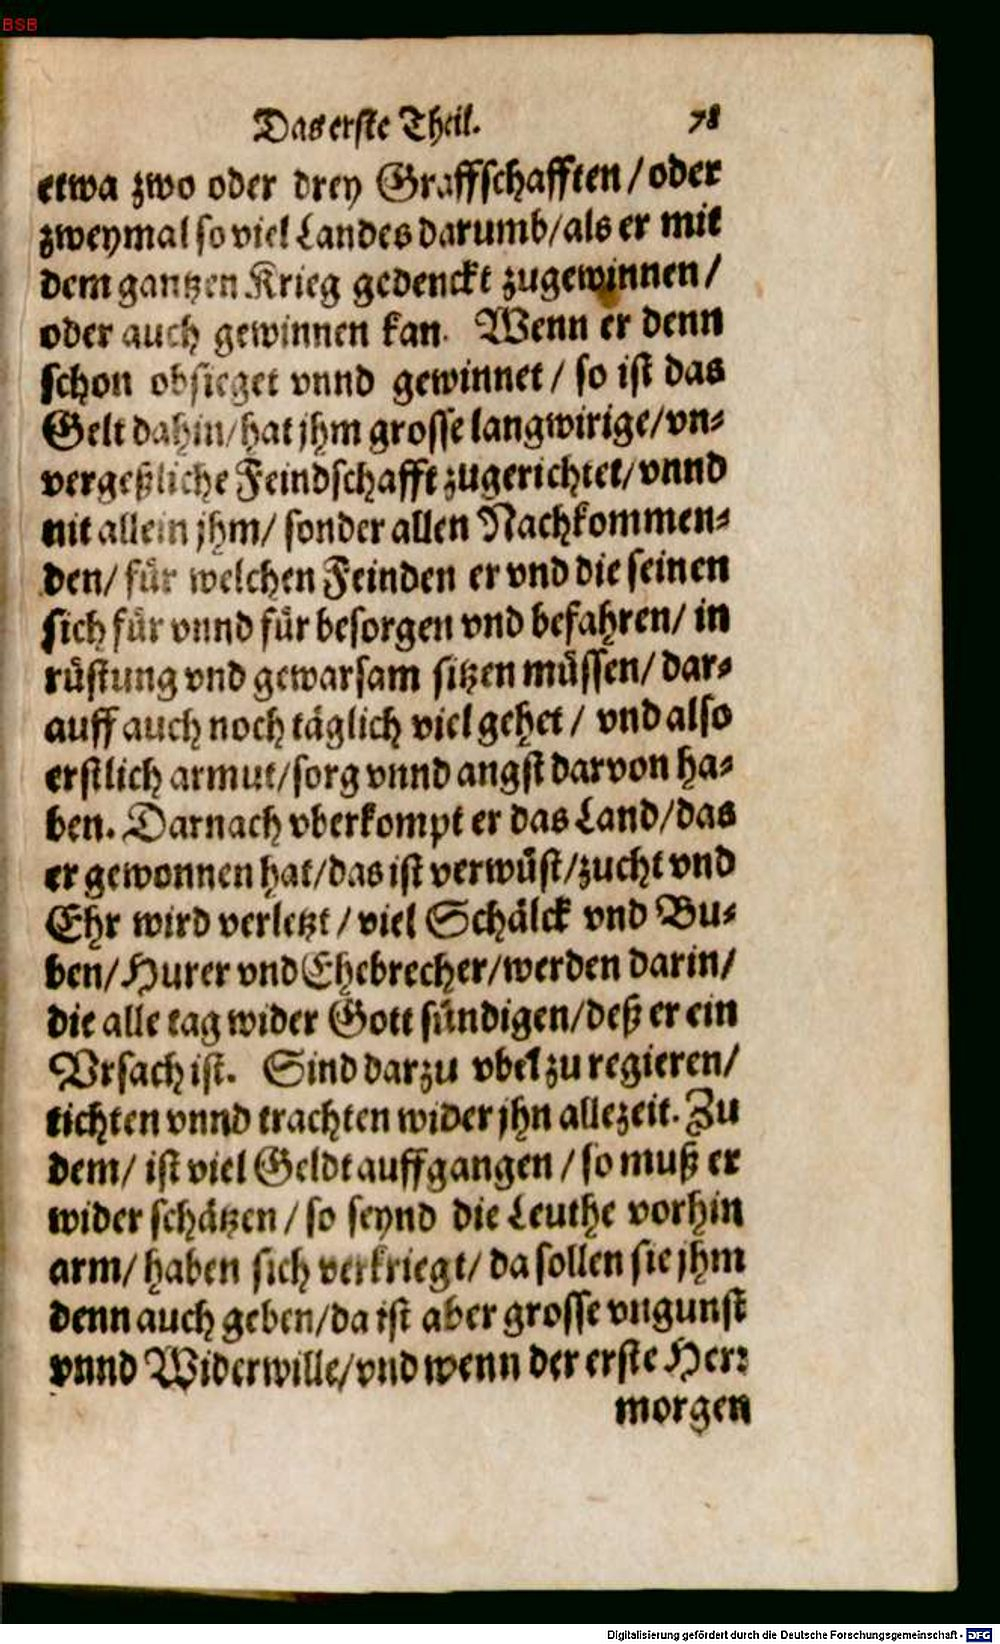 BSB
Das erste Theil. 78
etwa zwo oder drey Graffschafften / oder
zweymal so viel Landes darumb / als er mit
dem gantzen Krieg gedenckt zugewinnen /
oder auch gewinnen kan. Wenn er denn
schon obsieget vnnd gewinnet / so ist das
Gelt dahin / hat jhm grosse langwirige / vn⸗
vergeßliche Feindschafft zugerichtet / vnnd
nit allein jhm / sonder allen Nachkommen⸗
den / für welchen Feinden er vnd die seinen
sich für vnnd für besorgen vnd befahren / in
rüstung vnd gewarsam sitzen müssen / dar⸗
auff auch noch täglich viel gehet / vnd also
erstlich armut / sorg vnnd angst darvon ha⸗
ben. Darnach vberkompt er das Land / das
er gewonnen hat / das ist verwüst / zucht vnd
Ehr wird verletzt / viel Schälck vnd Bu⸗
ben / Hurer vnd Ehebrecher / werden darin /
die alle tag wider Gott sündigen / deß er ein
Vrsach ist. Sind darzu vbel zu regieren /
tichten vnnd trachten wider jhn allezeit. Zu
dem / ist viel Geldt auffgangen / so muß er
wider schätzen / so seynd die Leuthe vorhin
arm / haben sich verkriegt / da sollen sie jhm
denn auch geben / da ist aber grosse vngunst
vnnd Widerwille / vnd wenn der erste Herr
morgen
Digitalisierung gefördert durch die Deutsche Forschungsgemeinschaft - DFG